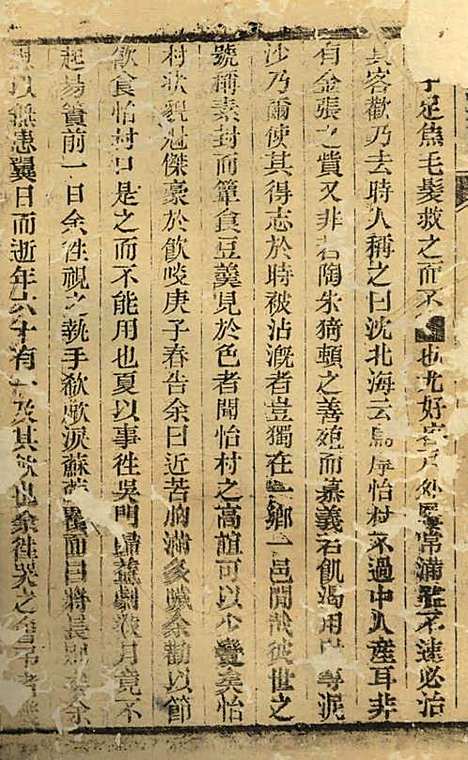 手足焦毛髮救之而不 也尤好客戶外屨常滿雖不速必治
具客歡乃去時人稱之曰沈北海云烏虖怡村不過中人產耳非
有金張之貲又非若陶朱猗頓之善殖而慕義若飢渴用財等泥
沙乃爾使其得志於時被沾溉者豈獨在一鄉一邑間哉彼世之
號稱素封而簞食豆羹見於色者聞怡村之高誼可以少變矣怡
村狀貌魁傑豪於飲啖庚子春告余曰近苦胸滿多痰余勸以節
飲食怡村曰是之而不能用也夏以事往吳門歸益劇數月竟不
起易簀前一日余往視之執手欷歔淚蘇蘇覆面曰將長別 余
以無恚翼日而逝年六十有一及其 也余往哭之會弔者